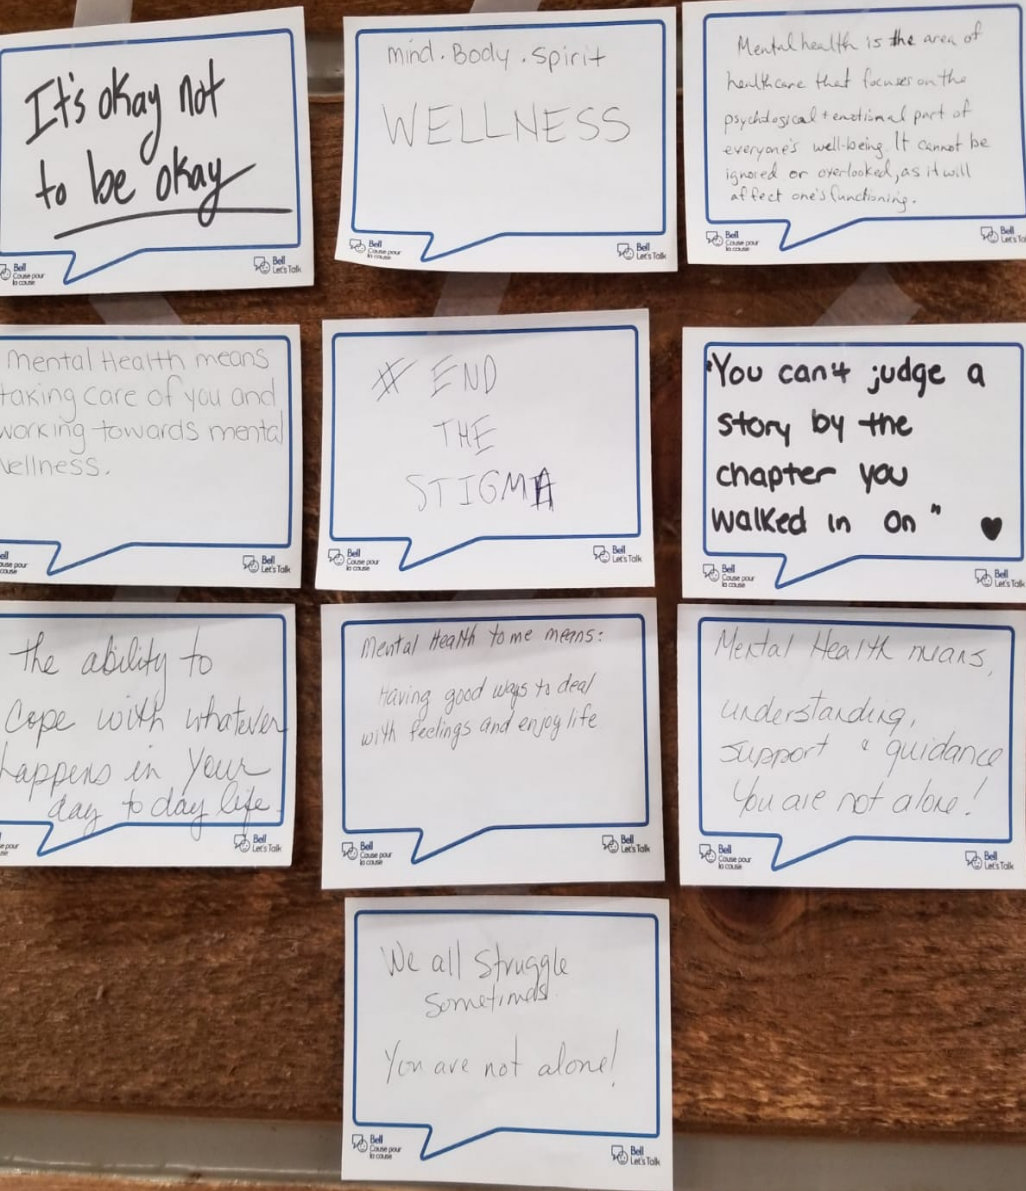 It's okay not
to be okay
Bell
Cause pour
la cause
Bell
Let's Talk
mind. Body. Spirit
WELLNESS
Bell
Cause pour
la cause
Bell
Let's Talk
Mental health is the area of
healthcare that focuses on the
psychological + emotional part of
everyone's well-being. It cannot be
ignored or overlooked, as it will
affect one's functioning.
Bell
Cause pour
la cause
Bell
Let's Ta
Mental Health means
taking care of you and
working towards mental
wellness.
ell
ause pour
cause
Bell
Let's Talk
# END
THE
STIGMA
Bell
Cause pour
la cause
Bell
Let's Talk
"You can't judge a
story by the
chapter you
walked in on" ♥
Bell
Cause pour
la cause
Bell
Let's Talk
the ability to
cope with whatever
happens in your
day to day life.
e pour
se
Bell
Let's Talk
Mental Health to me means:
Having good ways to deal
with feelings and enjoy life
Bell
Cause pour
la cause
Bell
Let's Talk
Mental Health means,
understanding,
support & guidance
You are not alone!
Bell
Cause pour
la cause
Bell
Let's Talk
We all struggle
sometimes.
You are not alone!
Bell
Cause pour
la cause
Bell
Let's Talk